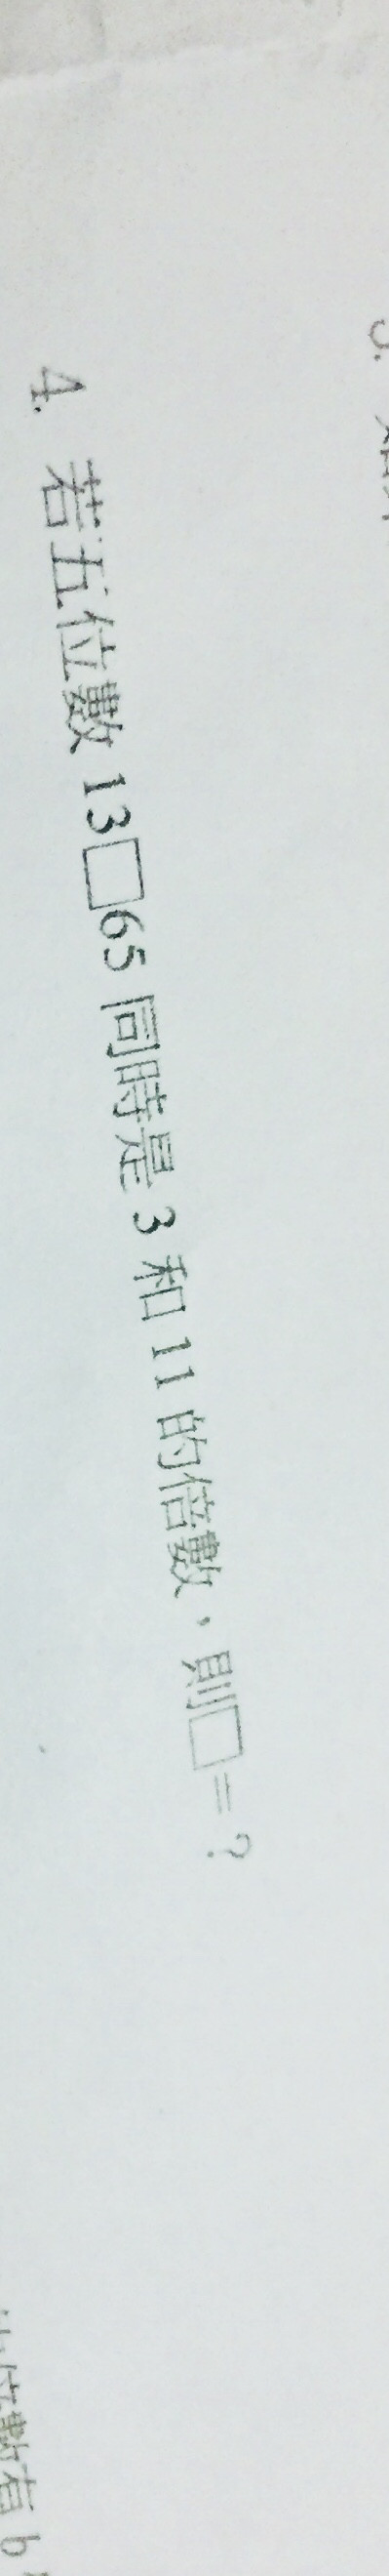 4. 若五位數 13□65 同時是 3 和 11 的倍數，則□=？
位數有 b